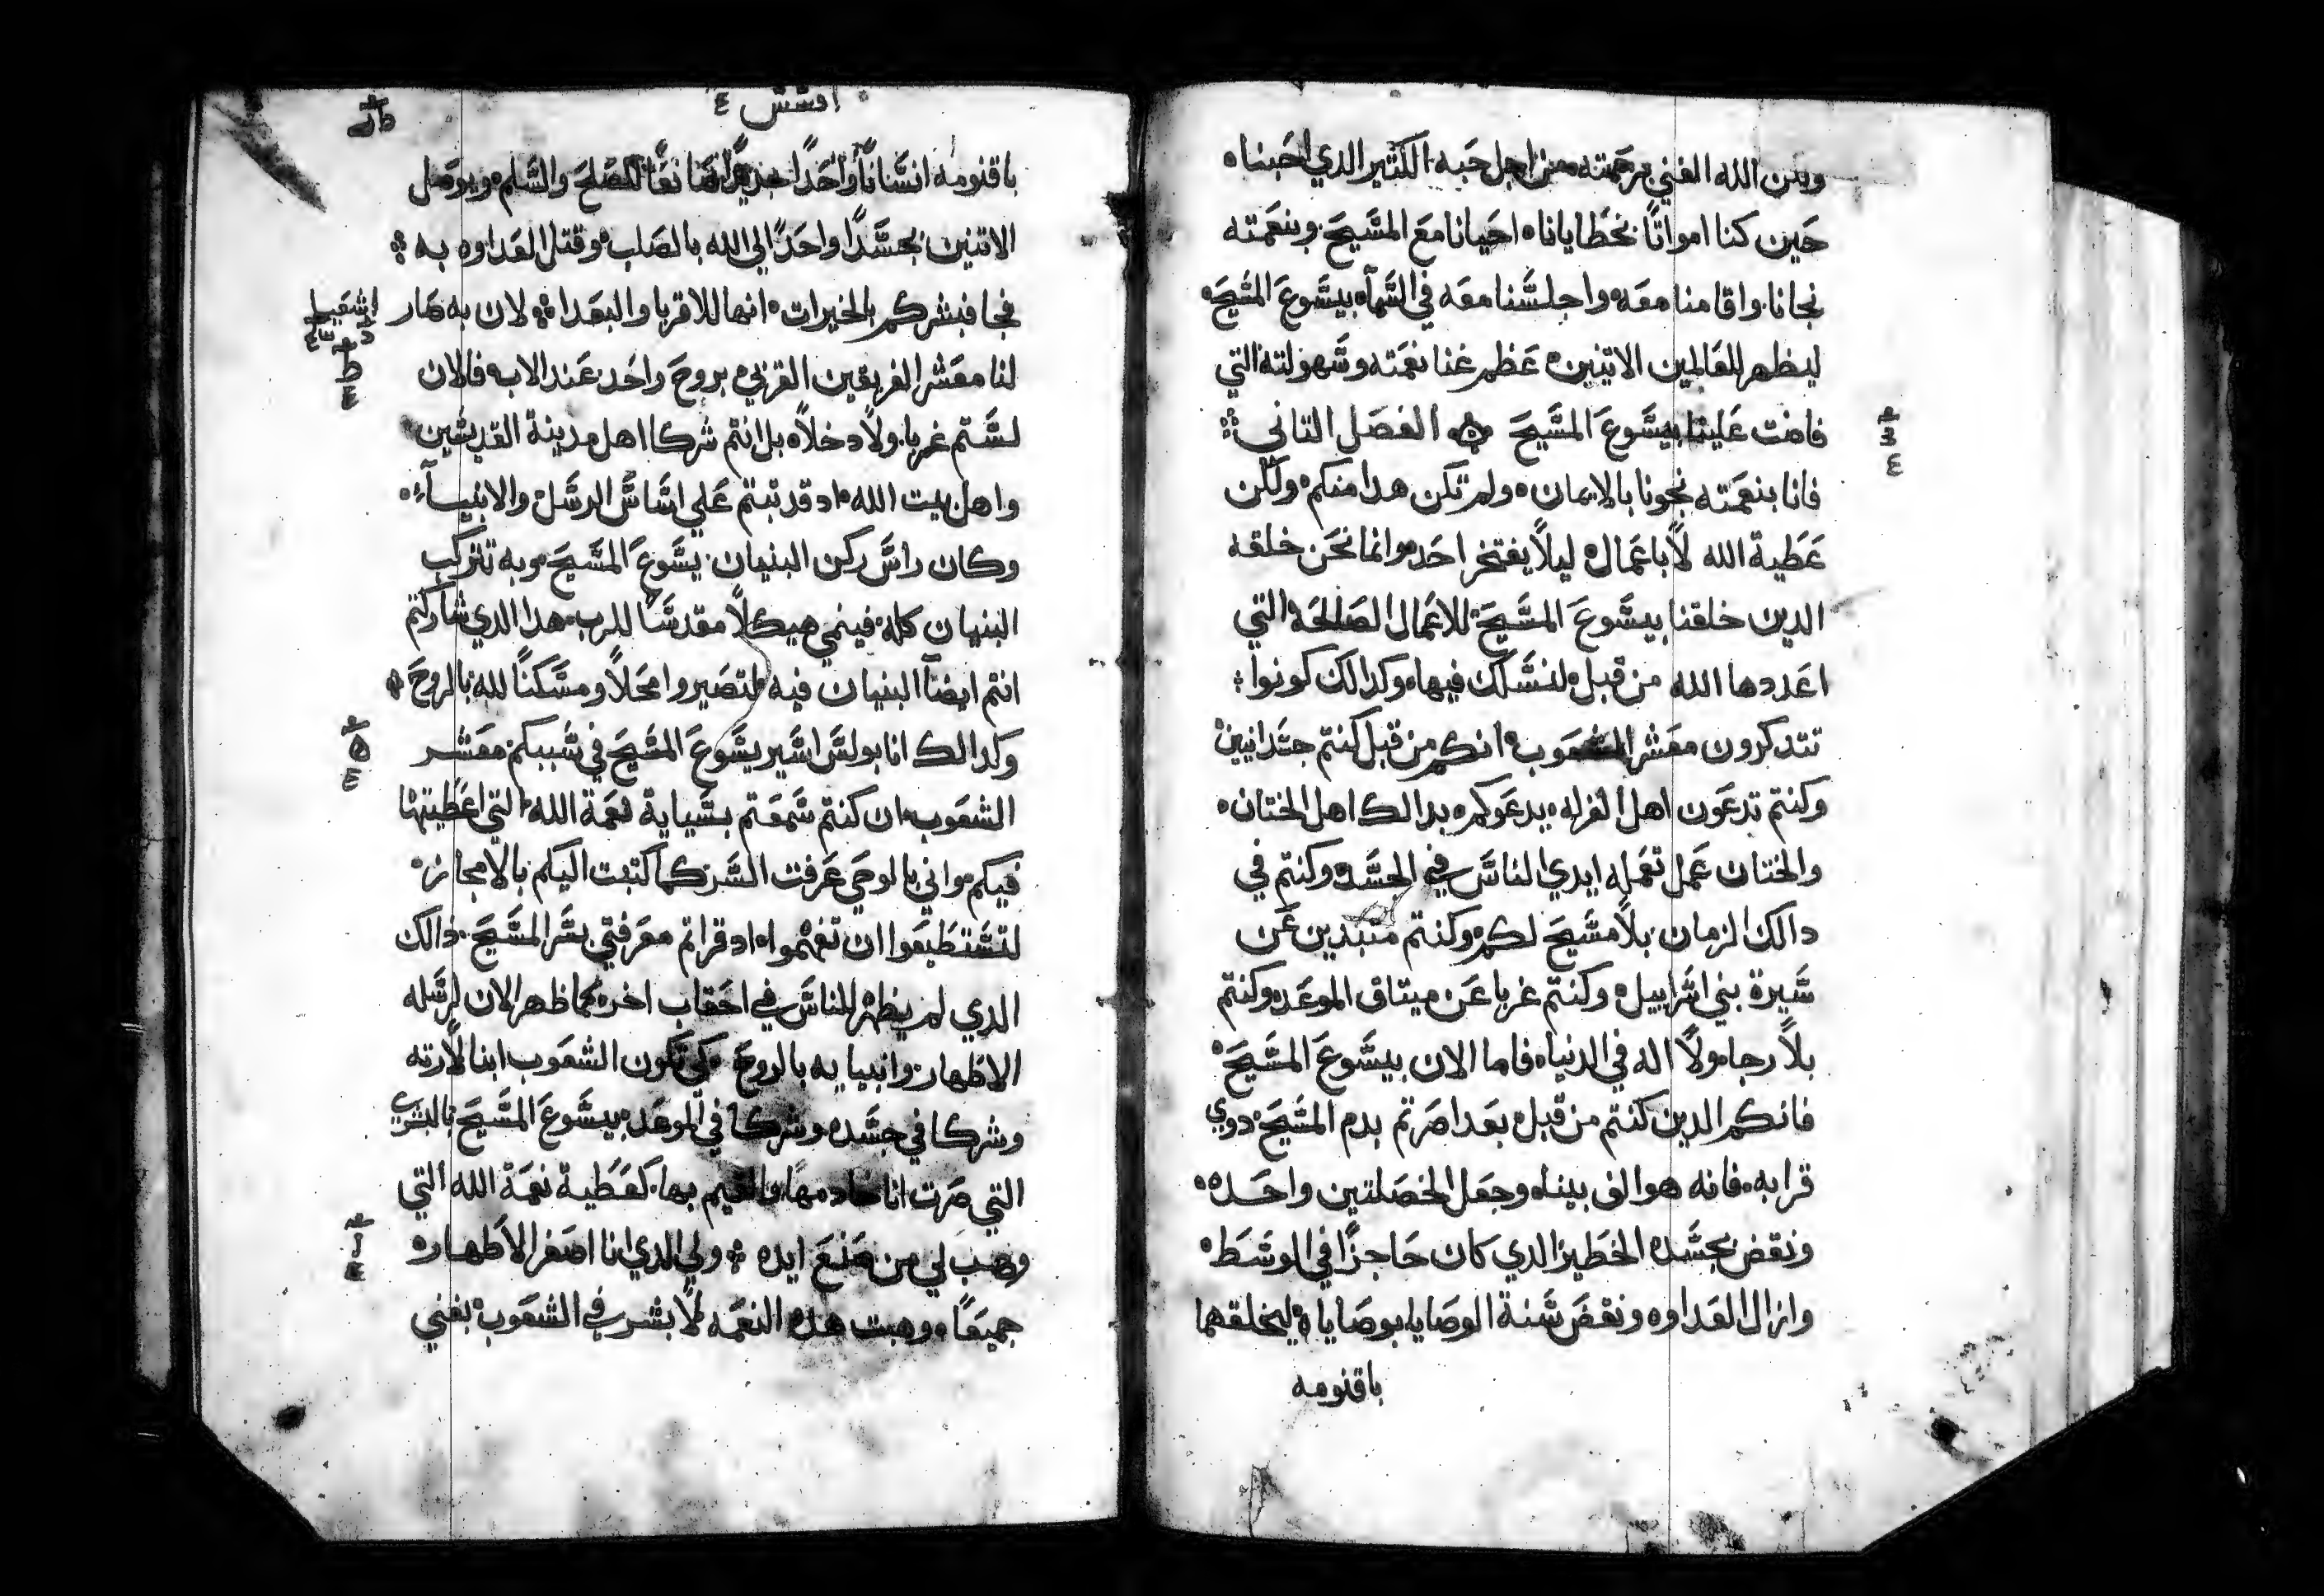 ومن الله الغني برحمته من اجل حبه الكتير الدي احبنا
حين كنا امواتًا بخطايانا احيانا مع المسيح وبنعمته
نجانا واقامنا معه واجلسنا معه في السمآ بيسوع المسيح
ليظهر للعالمين الاتيين عظم غنا نعمته وسهولته التي
فاضت علينا بيسوع المسيح الفصل التاني
فانا بنعمته نجونا بالايمان ولم تكن هدا منكم ولكن
عطية الله لا باعمال ليلا يفتخر احد وانما نحن خلقه
الدين خلقنا بيسوع المسيح للاعمال الصالحه التي
اعددها الله من قبل لنسلك فيها وكدالك كونوا
تتدكرون معشر الشعوب انكم من قبل كنتم جسدانيين
وكنتم تدعون اهل الغرله يدعوكم بدالك اهل الختان
والختان عمل تعمله ايدي الناس في الجسد وكنتم في
دالك الزمان بلا مسيح لكم وكنتم متبدين عن
سيرة بني اسراييل وكنتم غربا عن ميتاق الموعد وكنتم
بلا رجا ولا اله في الدنيا فاما الان بيسوع المسيح
فانكم الدين كنتم من قبل بعدا صرتم بدم المسيح دوي
قرابه فانه هو الف بيننا وجعل الخصلتين واحده
ونقض بجسده الحظير الدي كان حاجزًا في الوسط
وازال العداوه ونقض سنة الوصايا بوصاياه ليخلقهما
باقنومه
افسس
باقنومه انسانًا واحدًا جديدًا صانعًا للصلح والسلم ويوصل
الاتنين بجسدًا واحدًا الي الله بالصلب وقتل العداوه به
فجا فبشركم بالخيرات انها للاقربا والبعدا لان به صار
اشعيا
لنا معشر الفريقين القربي بروح واحد عند الاب فالان
لستم غربا ولا دخلا بل انتم شركا اهل مدينة القديسين
واهل بيت الله اد قد تبتم علي اساس الرسل والانبيآء
وكان راس ركن البنيان يسوع المسيح وبه تتركب
البنيان كله فينمي هيكلًا مقدسًا للرب هدا الدي شاركتم
انتم ايضًا البنيان فيه لتصيروا محلًا ومسكنًا لله بالروح
وكدالك انا بولس اسير يسوع المسيح في سببكم معشر
الشعوب ان كنتم سمعتم بسياية نعمة الله التي اعطيتها
فيكم واني بالوحي عرفت السر كما كتبت اليكم بالايجاز
لتستطيعوا ان تفهموا اد قراتم معرفتي بسر المسيح دالك
الدي لم يظهر للناس في احقاب اخر كما ظهر الان لرسله
الاظهار وانبيايه بالروح كي تكون الشعوب ابنا لارته
وشركا في جسده وشركا في الموعد بيسوع المسيح بالبشري
التي صرت انا خادمها والقيم بها كعطية نعمة الله التي
وهب لي من صنع ايده ولي الدي انا اصغر الاطهار
جميعًا وهبت هده النعمه لابشر في الشعوب بغني